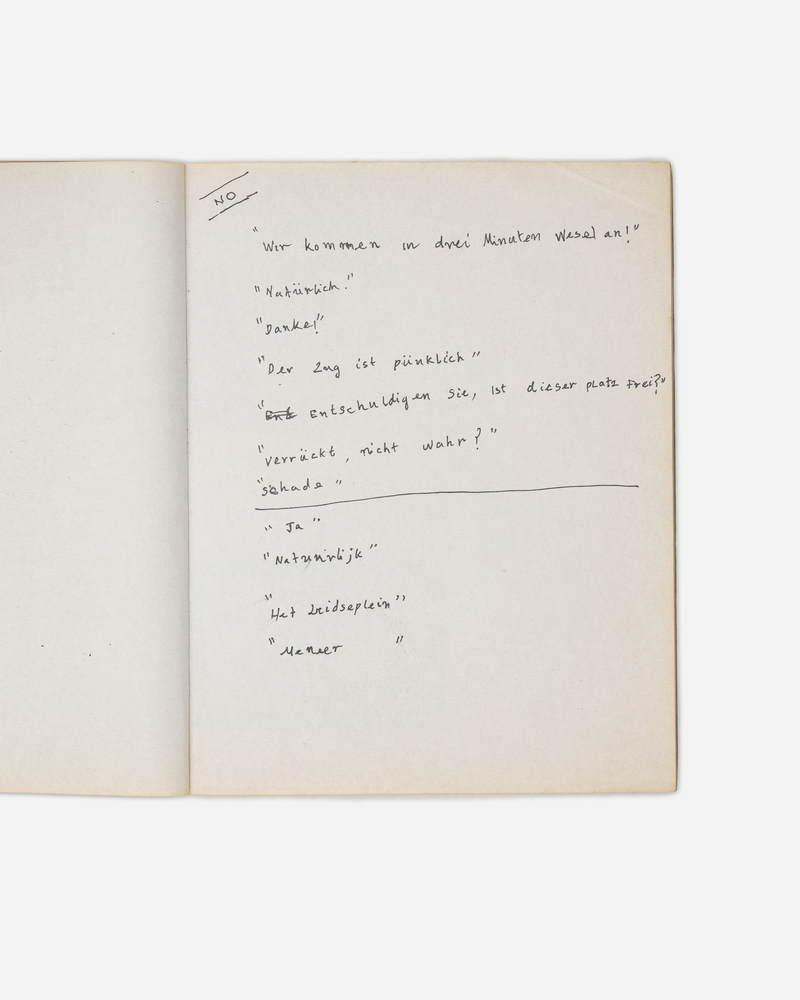 NO
"Wir kommen in drei Minuten Wesel an!"
"Natürlich!"
"Danke!"
"Der Zug ist pünklich"
"Ent Entschuldigen Sie, ist dieser platz frei?"
"verrückt, nicht wahr?"
"schade"
"Ja"
"Natuurlijk"
"Het Leidseplein"
"Meneer "